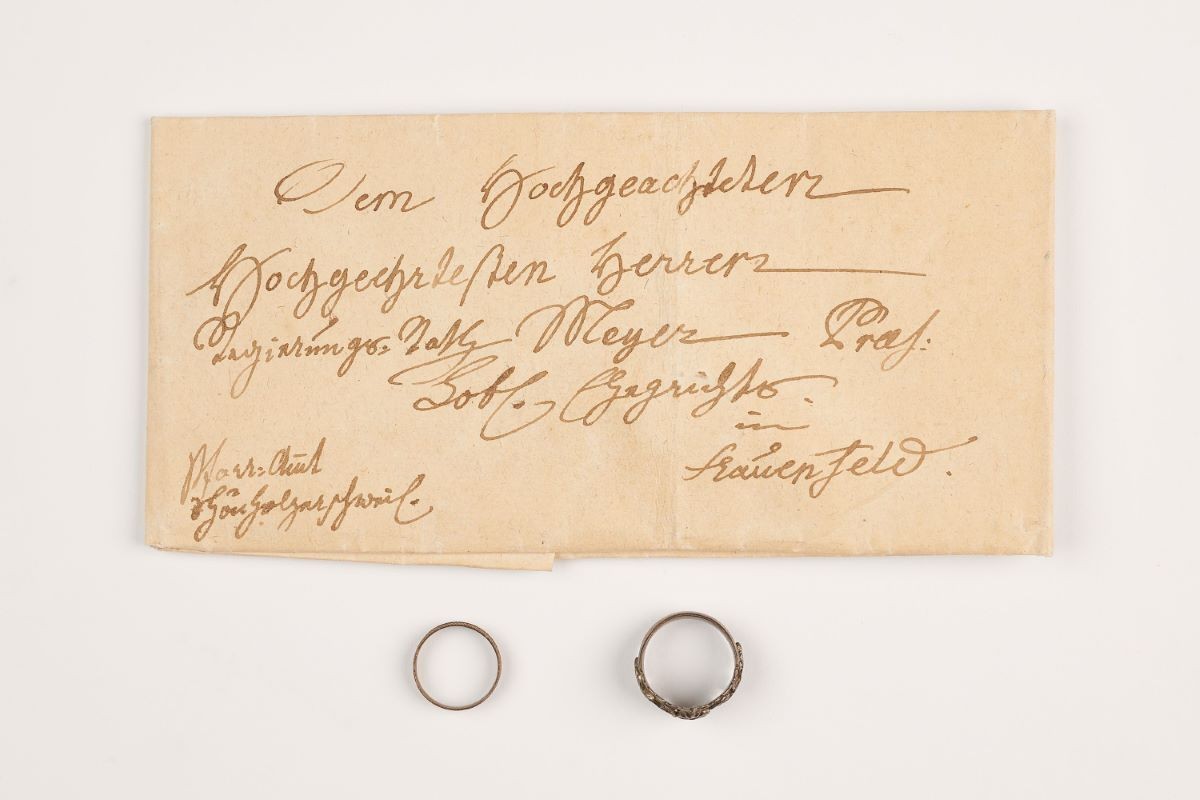 Dem Hochgeachteten
Hochgeehrtesten Herren
Regierungs-Rath Meyer Præs:
Lobl. Ehegrichts.
in
Frauenfeld.
Pfarr-Amt
Schönholzerschweil.